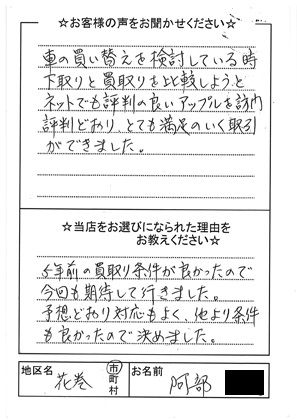 ☆お客様の声をお聞かせください☆
車の買い替えを検討している時
下取りと買取りを比較しようと
ネットでも評判の良いアップルを訪門
評判どおり、とても満足のいく取引
ができました。
☆当店をお選びになられた理由を
お教えください☆
5年前の買取り条件が良かったので
今回も期待して行きました。
予想どおり対応もよく、他より条件
も良かったので決めました。
地区名 花巻 市町村 お名前 阿部